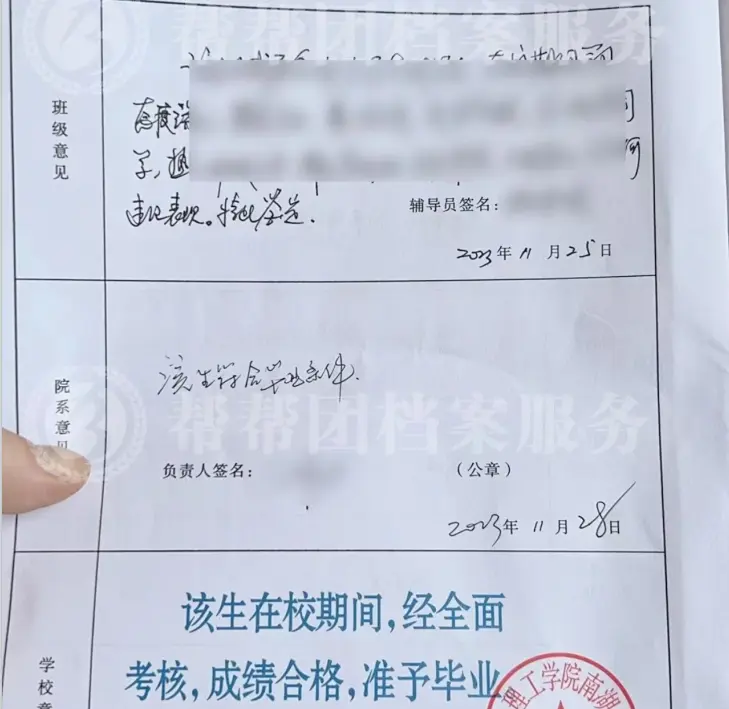 帮帮团档案服务
班级意见
态度
学,
违纪表现。特此鉴定.
辅导员签名:
2023年 11 月 25 日
院系意见
该生符合毕业条件.
帮帮团档案服务
负责人签名: (公章)
2023年 11 月 28日
学校意
该生在校期间,经全面
考核,成绩合格,准予毕业。
理工学院南湖